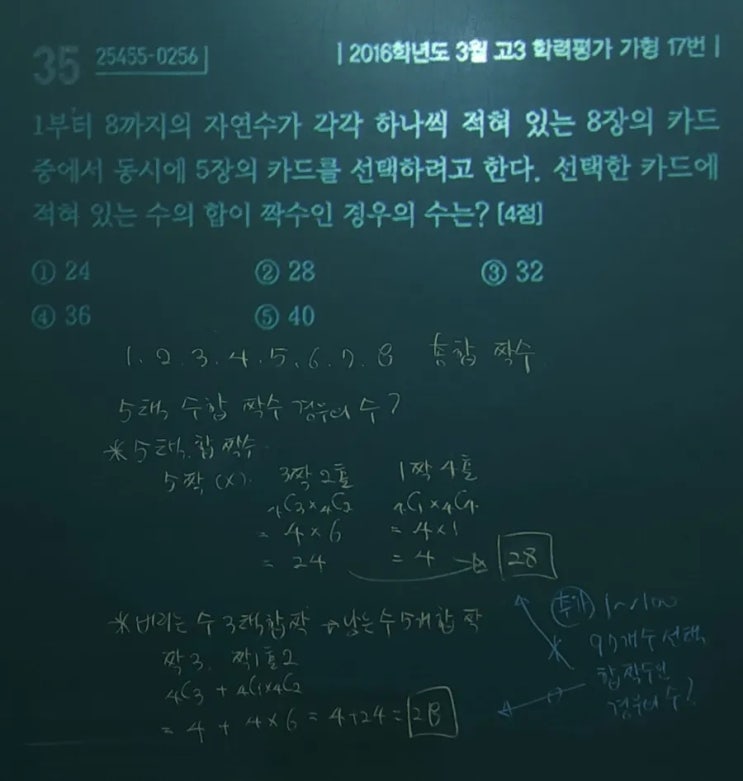 35 25455-0256 | 2016학년도 3월 고3 학력평가 가형 17번 |
1부터 8까지의 자연수가 각각 하나씩 적혀 있는 8장의 카드
중에서 동시에 5장의 카드를 선택하려고 한다. 선택한 카드에
적혀 있는 수의 합이 짝수인 경우의 수는? [4점]
① 24 ② 28 ③ 32
④ 36 ⑤ 40
1. 2. 3. 4. 5. 6. 7. 8 총합 짝수
5택 수합 짝수 경우의 수?
* 5택 합 짝수
5짝 (X). 3짝 2홀 1짝 4홀
₄C₃×₄C₂ ₄C₁×₄C₄
= 4×6 = 4×1
= 24 = 4 → 28
* 버리는 수 3택 합 짝 → 남는 수 5개 합 짝
짝3. 짝1홀2
₄C₃ + ₄C₁×₄C₂
= 4 + 4×6 = 4+24 = 28
1~100
97개 수 선택
합 짝수인
경우의 수?